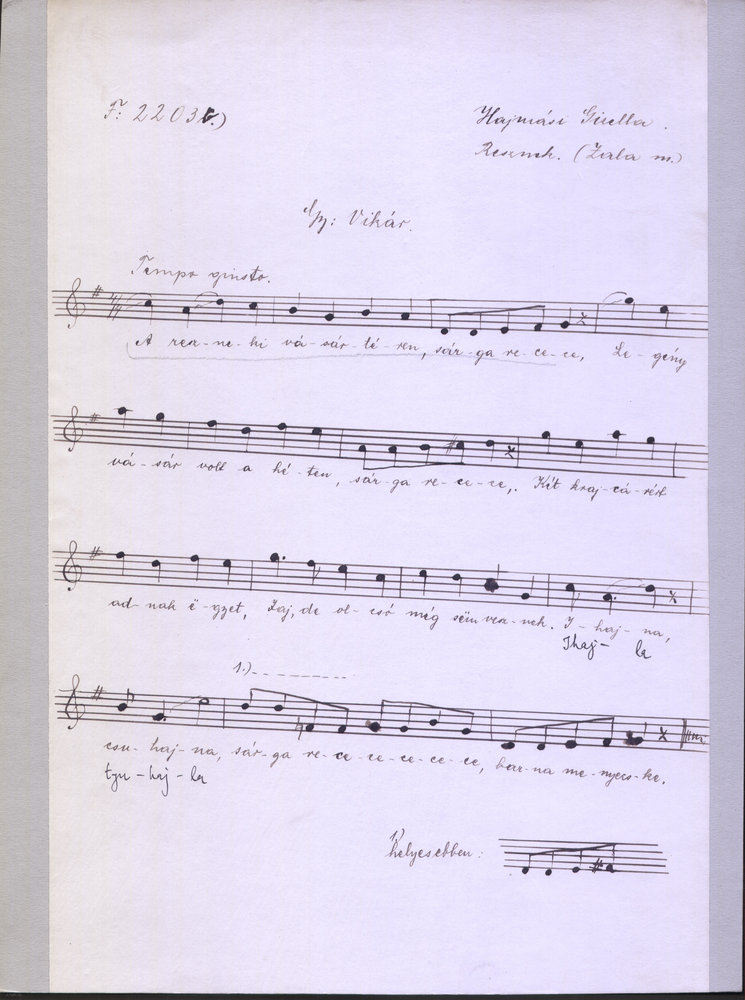 F: 2203b.)
Hajmási Gizella.
Resznek. (Zala m.)
Gy: Vikár.
Tempo giusto.
A resz-ne-ki vá-sár-té-ren, sár-ga re-ce-ce, Le-gény
vá-sár volt a hé-ten, sár-ga re-ce-ce,. Két kraj-cá-rért
ad-nak ë-gyet, Jaj, de ol-csó még sëm vesz-nek. I-haj-na,
Ihaj- la
1.)
csu-haj-na, sár-ga re-ce-ce-ce-ce-ce, bar-na me-nyecs-ke.
tzu-haj-la
1) helyesebben: